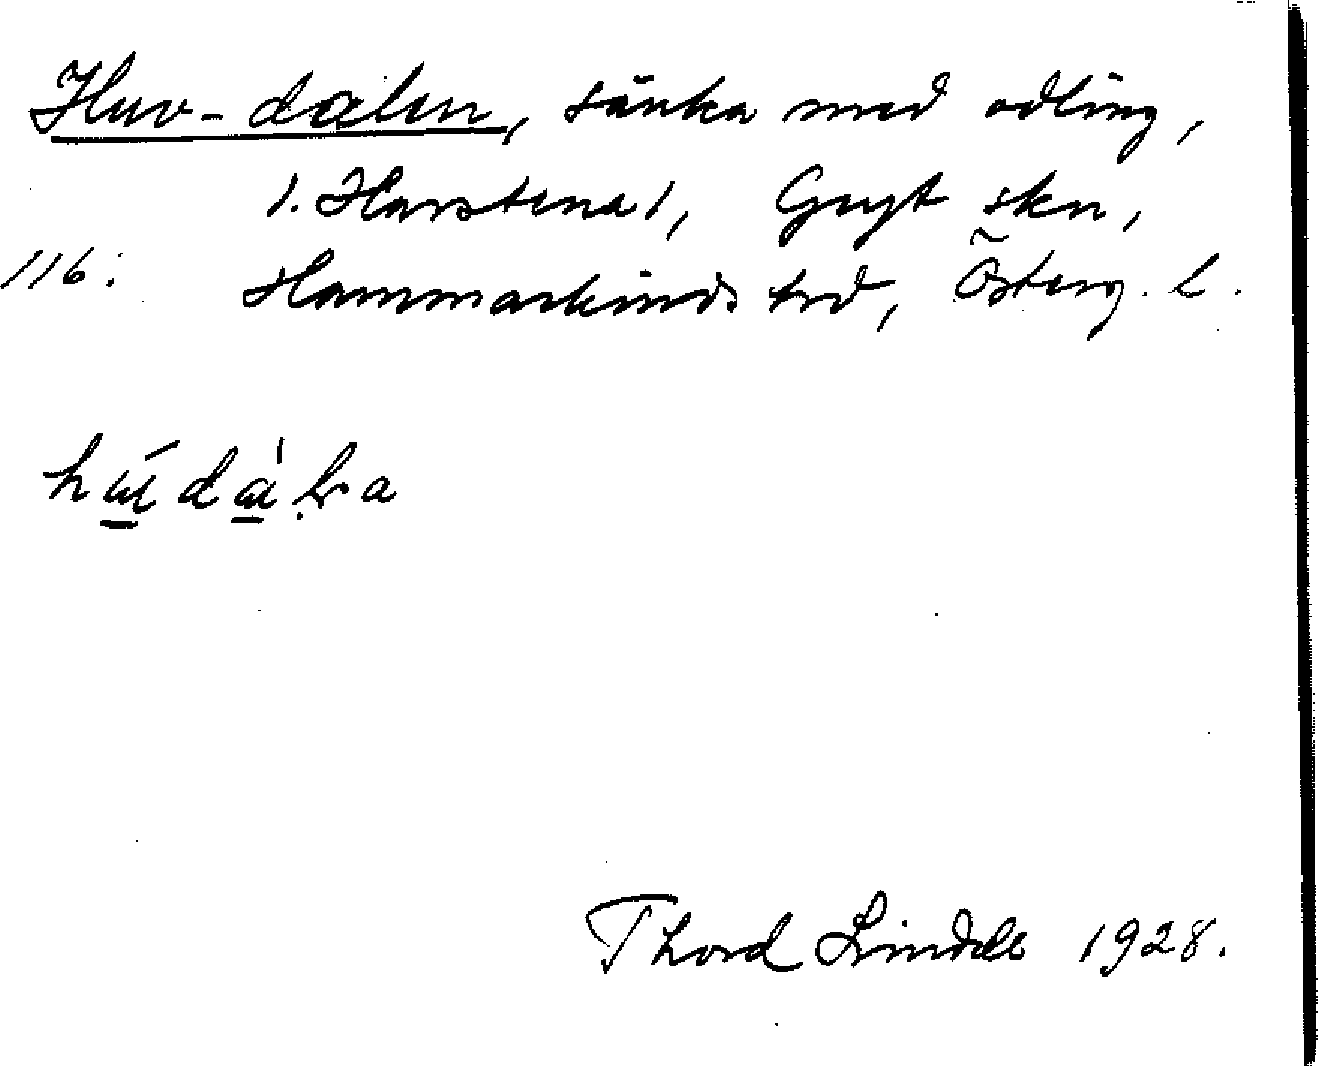 Huv-dalen, sänka med odling,
1. Harstena 1, Gryt skn,
116: Hammarkinds hrd, Österg. l.
Thord Lindele 1928.